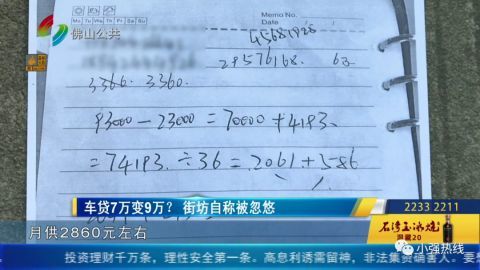 佛山公共
Memo No.
Mo Tu We Th Fr Sa Su
Date
45681928
29576168. 63
3366. 3360.
93000-23000=70000+4193.
=74193.÷36=2061+586
车贷7万变9万? 街坊自称被忽悠
2233 2211
石湾玉冰烧
洞藏20
月供2860元左右
小强热线
投资理财千万条,理性安全第一条。高息利诱需留神,非法集资祸害人。要想